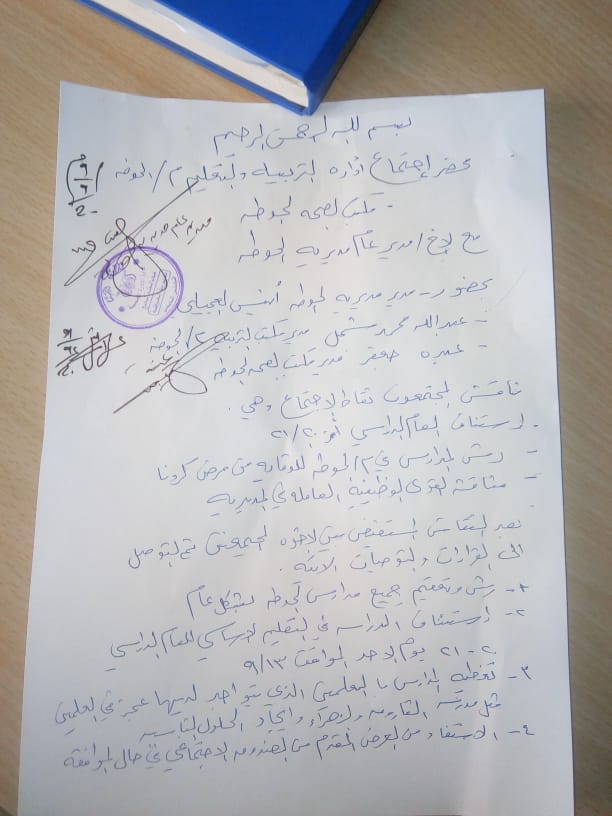 بسم الله الرحمن الرحيم
محضر إجتماع أداره التربيه والتعليم م/الحوطه
مكتب لصحه الحوطه
مع الاخ/ مدير عام مديريه الحوطه
بحضور - مدير مديريه الحوطه أنيس العجيلي
- عبدالله محمد مدير مكتب لتربيه م/الحوطه
- جعفر مدير مكتب لصحه الحوطه
ناقش المجتمعون نقاط الاجتماع وهي .
- إستئناف العام الدراسي ٢٠/٢١
- رش المدارس في م/الحوطه للوقايه من مرض كرونا
- مناقشة القوى الوظيفيه العامله في المديريه
بعد النقاش المستفيض بين لاخوه الجميع تم التوصل
الى القرارات والتوصيات الاتيه .
١- رش وتعقيم جميع مدارس لحوطه بشكل عام
٢- إستئناف الدراسه في التعليم الاساسي للعام الدراسي
٢٠-٢١ يوم الاحد الموافق ٩/١٣
٣- تغطيه المدارس بالمعلمين الذي يتواجد لديها عجز في المعلمين
مثل مدرسه الفاروق والزهراء وايجاد الحلول لمناسبه
٤- الاستفاد من العرض المقدم من الصندوق الاجتماعي في حال الموافقة